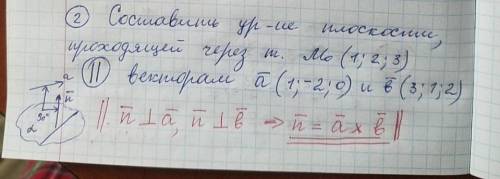 ② Составить ур-ие плоскости,
проходящей через т. M₀ (1; 2; 3)
|| векторам a̅ (1; -2; 0) и b̅ (3; 1; 2)
a
n̅
90°
α
|| n̅ ⊥ a̅, n̅ ⊥ b̅ → n̅ = a̅ × b̅ ||